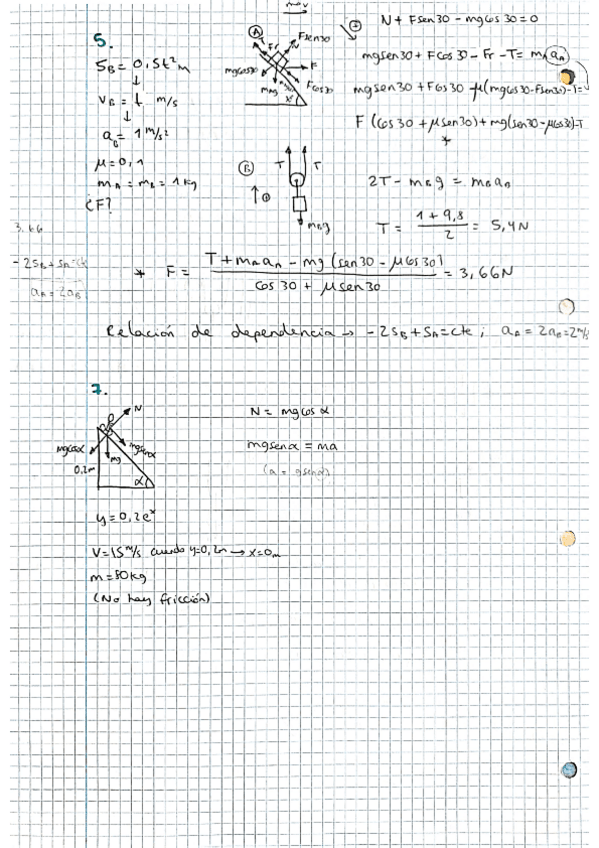 mov
5.
S_B = 0,5t² m
↓
V_B = t m/s
↓
a_B = 1 m/s²
μ = 0,1
m_A = m_B = 1 kg
¿F?
A
Fr
N
Fsen30
F
Fcos30
mgcos30
mAg
α
N + Fsen30 - mgcos30 = 0
mgsen30 + Fcos30 - Fr - T = m_A a_A
mgsen30 + Fcos30 - μ(mgcos30 - Fsen30) - T =
F (cos30 + μsen30) + mg(sen30 - μcos30) - T
*
B
T T
m_B g
2T - m_B g = m_B a_B
T = (1 + 9,8)/2 = 5,4N
-2S_B + S_A = cte
a_A = 2a_B
* F = (T + m_A a_A - mg (sen30 - μcos30))/(cos30 + μsen30) = 3,66N
Relación de dependencia → -2S_B + S_A = cte ; a_A = 2a_B = 2 m/s
7.
N
mgcosα
mgsenα
mg
0,2m
α
N = mgcos α
mgsenα = ma
(a = gsenα)
y = 0,2eˣ
V = 15 m/s cuando y=0,2m → x=0m
m = 80kg
(No hay fricción)